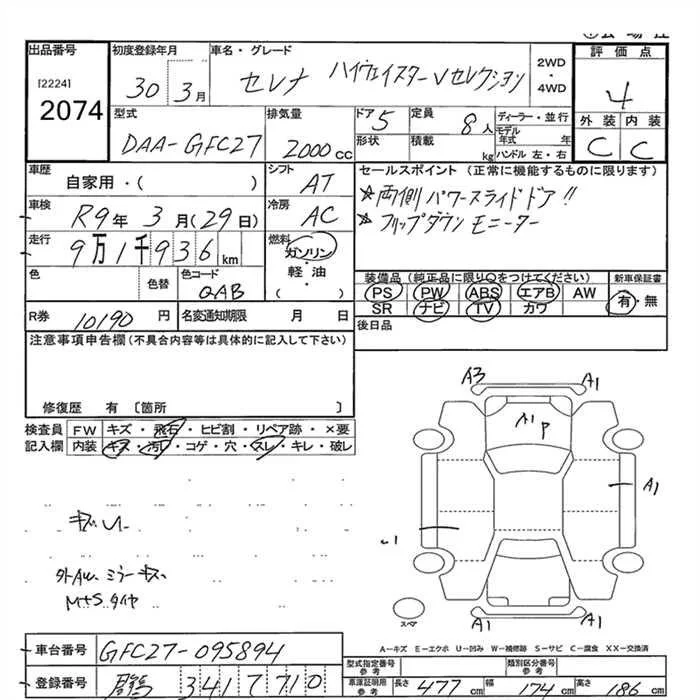 出品番号
[2224]
2074
初度登録年月
30 3月
車名・グレード
セレナ ハイウェイスター Vセレクション
2WD
・
4WD
評価点
4
外装 内装
C C
型式
DAA-GFC27
排気量
2000cc
ドア 5
形状
定員 8人
積載 kg
ディーラー・並行
モデル年式 年
ハンドル 左・右
車歴
自家用・( )
シフト AT
車検 R9年 3月(29日)
冷房 AC
走行 9万1千936km
燃料
ガソリン・
軽油・
( )
色
色替
色コード
QAB
R券 10190円
名変通知期限 月 日
セールスポイント (正常に機能するものに限ります)
★両側パワースライドドア!!
★フリップダウンモニター
装備品(純正品に限り○をつけてください)
PS PW ABS エアB AW
SR ナビ TV カワ
新車保証書
有・無
後日品
注意事項申告欄(不具合内容等は具体的に記入して下さい)
修復歴 有 〔箇所 〕
検査員
記入欄
FW キズ・飛石・ヒビ割・リペア跡・×要
内装 キズ・汚れ・コゲ・穴・スレ・キレ・破レ
A3 A1
A1 P
A1
A1 A1
スペア
ミラーキズ、
M+Sタイヤ
A-キズ E-エクボ U-凹み W-補修跡 S-サビ C-腐食 XX-交換済
車台番号 GFC27-095894
登録番号 3417710
型式指定番号
参考
類別区分番号
参考
車庫証明用
参考
長さ 477cm 幅 174cm 高さ 186cm